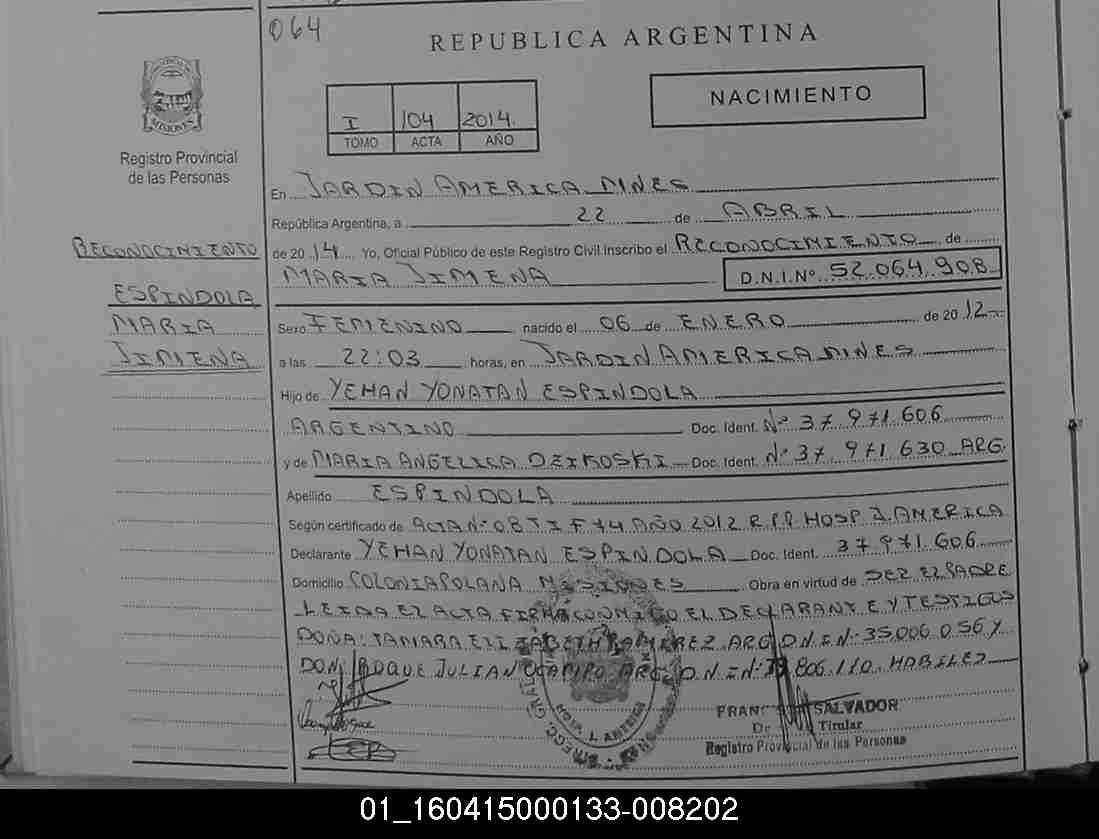 064
REPUBLICA ARGENTINA
NACIMIENTO
I 104 2014
TOMO ACTA AÑO
MISIONES
Registro Provincial
de las Personas
RECONOCIMIENTO
ESPINDOLA
MARIA
JIMENA
En JARDIN AMERICA MNES
República Argentina, a 22 de ABRIL
de 2014 Yo, Oficial Público de este Registro Civil inscribo el RECONOCIMIENTO de
MARIA JIMENA D.N.I.Nº 52.064.908
Sexo FEMENINO nacido el 06 de ENERO de 2012
a las 22:03 horas, en JARDIN AMERICA MNES
Hijo de YEHAN YONATAN ESPINDOLA
ARGENTINO Doc. Ident. Nº 37 971 606
y de MARIA ANGELICA DZIKOSKI Doc. Ident. Nº 37 971 630 ARG.
Apellido ESPINDOLA
Según certificado de ACTA Nº 08 T I F 74 AÑO 2012 R.P.P. HOSP J. AMERICA
Declarante YEHAN YONATAN ESPINDOLA Doc. Ident. 37 971 606
Domicilio COLONIA POLANA MISIONES Obra en virtud de SER EL PADRE
LEIDA EL ACTA FIRMA CONMIGO EL DECLARANTE Y TESTIGOS
DOÑA: TAMARA ELIZABETH RAMIREZ ARG D.N.I Nº 35.006 056 Y
DON: ROQUE JULIAN OCAMPO ARG D.N.I Nº 806.110 HABILES
SALVADOR
Titular
Registro Provincial de las Personas
01_160415000133-008202